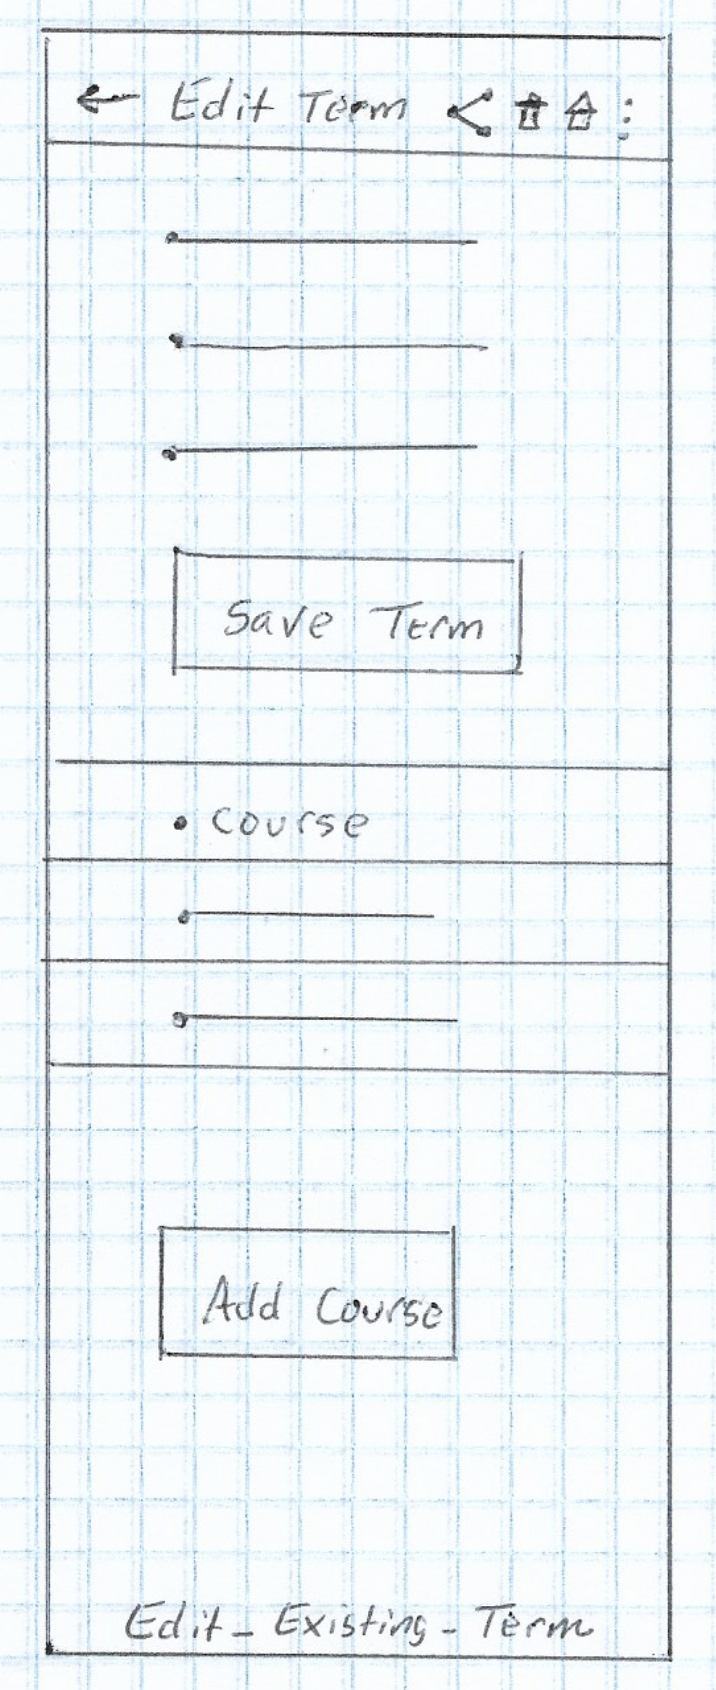 Edit Term
Save Term
course
Add Course
Edit_Existing_Term